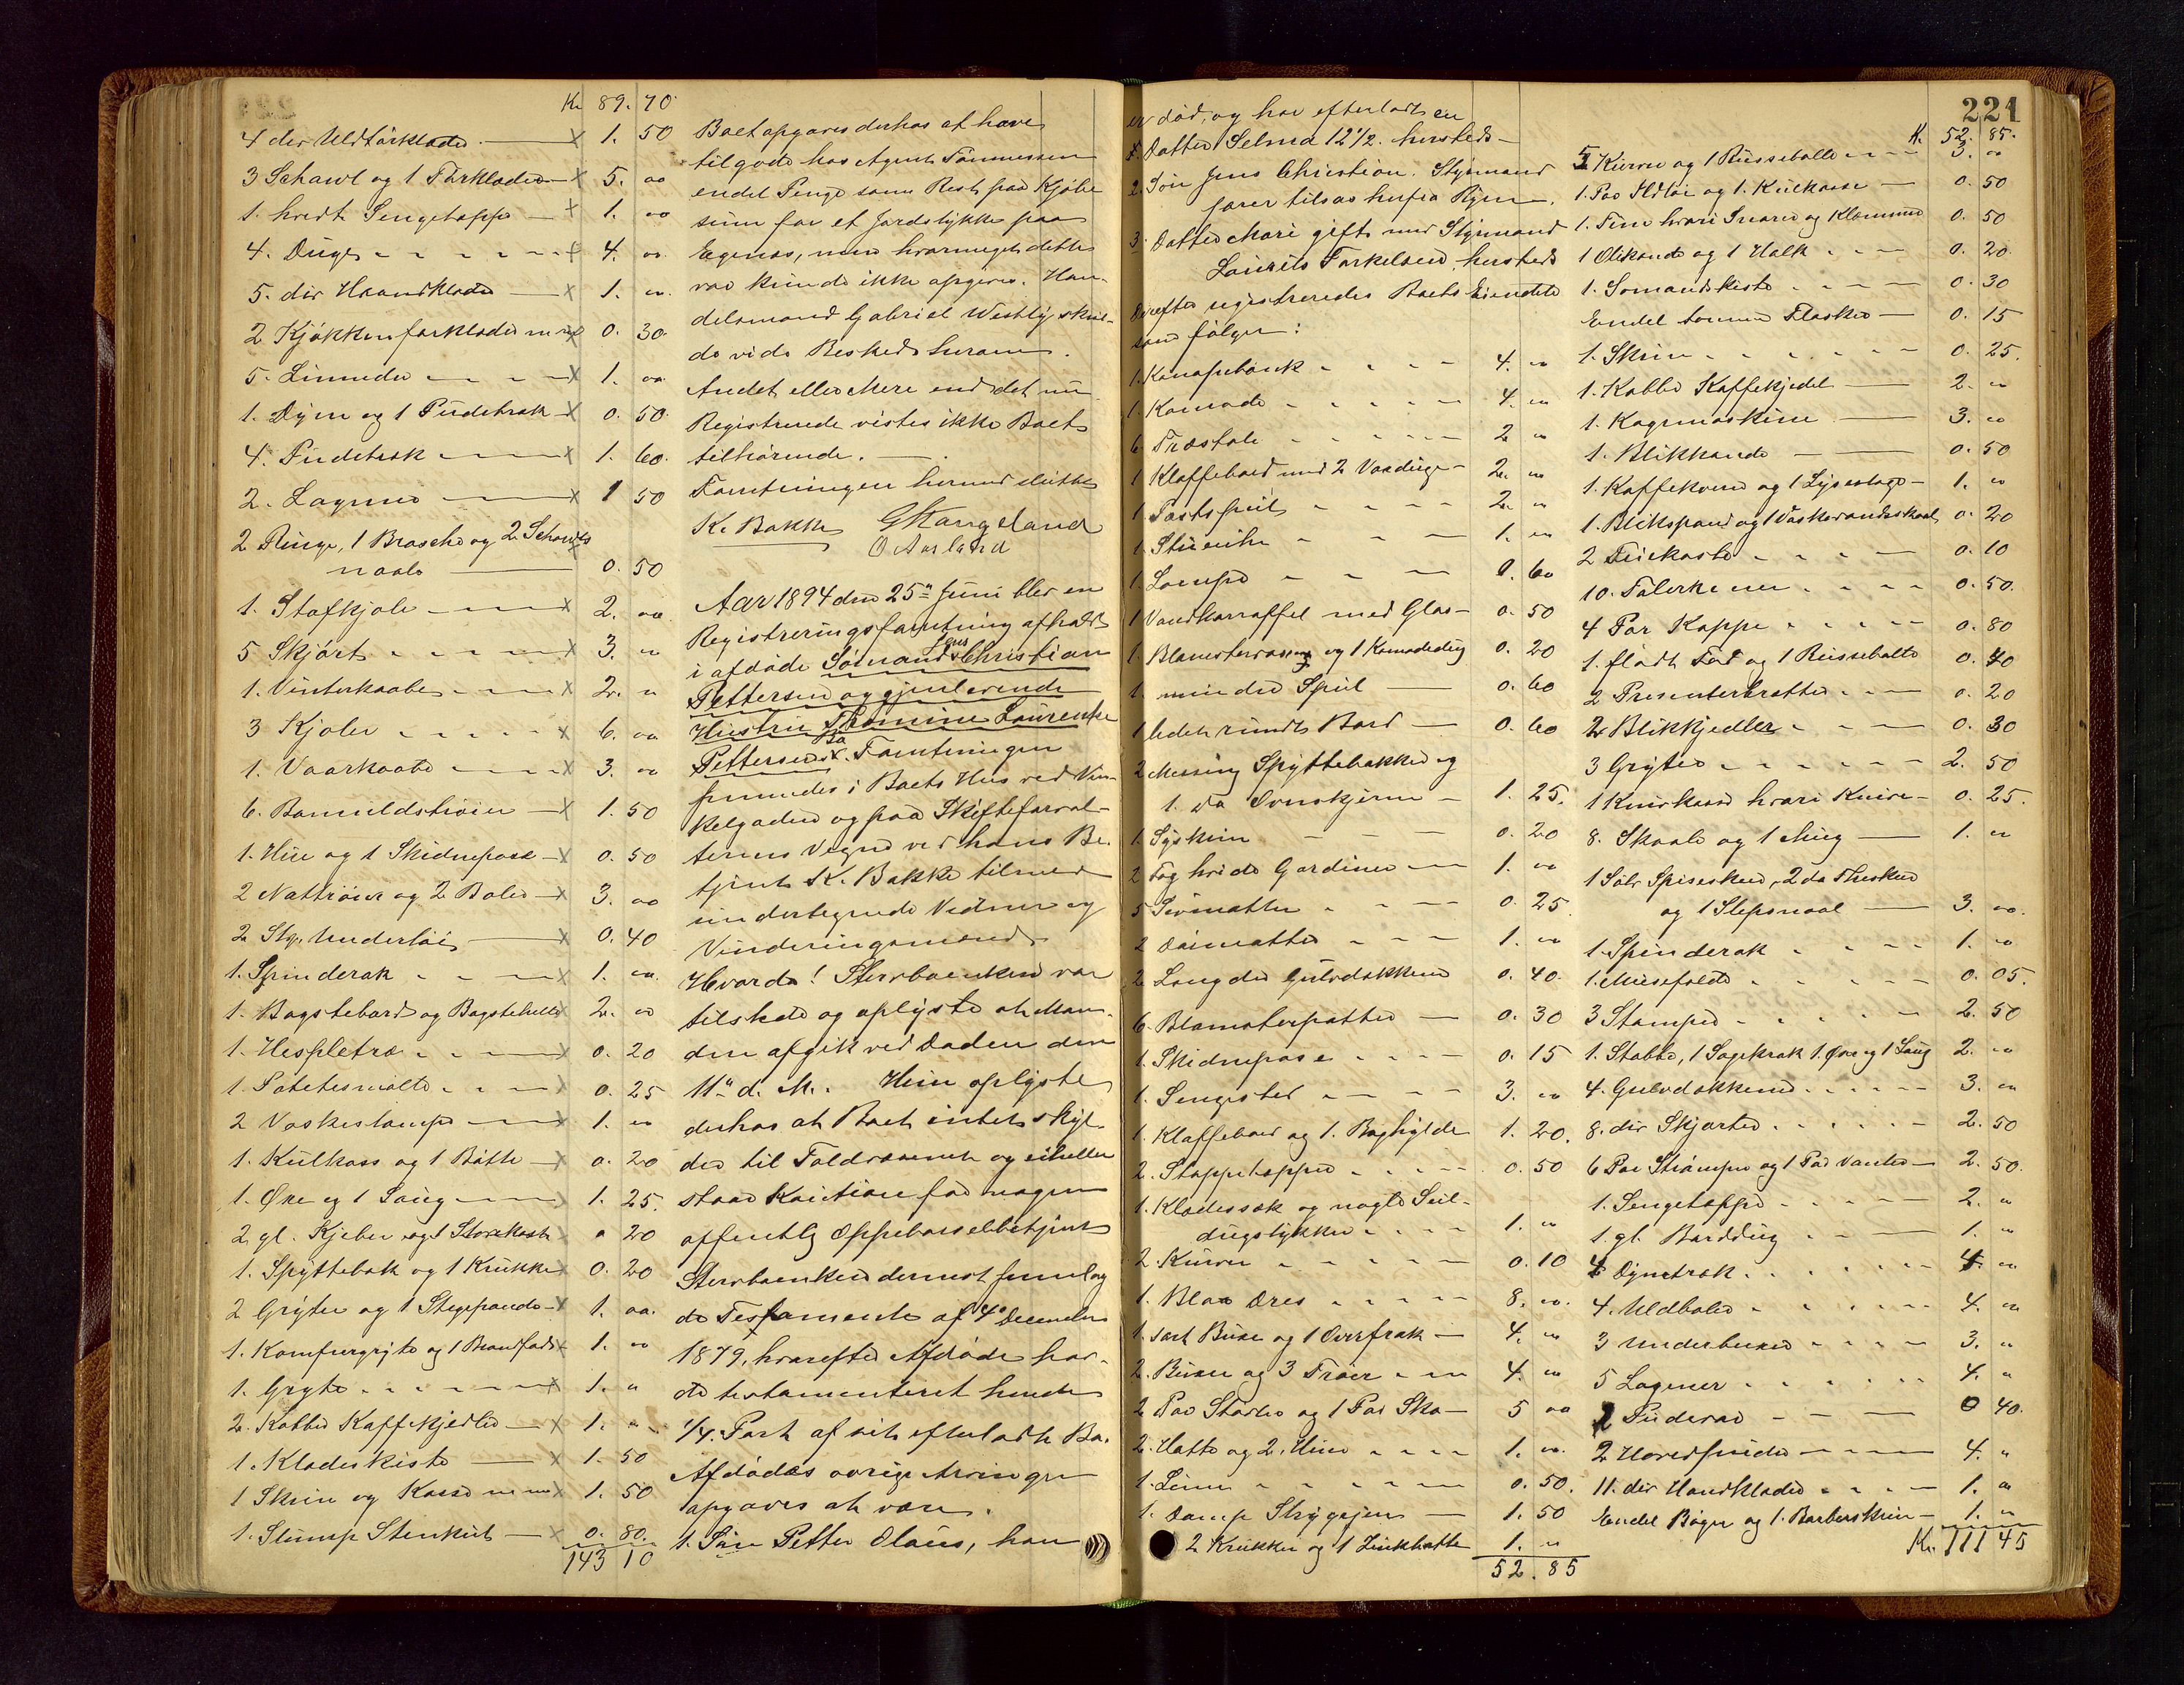 Kr. 89. 70
4 div Uldtörklæder x 1. 50
3 Schawl og 1 Törklæde x 5. oo
1. hvidt Sengetæppe x 1. oo
4. Duge x 4. oo
5. div Haandklæder x 1. oo
2 Kjökkenforklæder m m x 0. 30
5. Linneder x 1. oo
1. Dyne og 1 Pudetræk x 0. 50
4. Pudetræk x 1. 60.
2. Lagener x 1 50
2 Ringe, 1 Brosche og 2 Schawls
naale 0. 50
1. Stofkjole x 2. oo
5 Skjört x 3. oo
1. Vinterkaabe x 2. "
3 Kjoler x 6. oo
1. Vaarkaabe x 3. oo
6. Bomuldströier x 1. 50
1. Hue og 1 Skidenpose x 0. 50
2 Nattröier og 2 Boler x 3. oo
2 Stkr. Undertöi x 0. 40
1. Spinderok x 1. oo
1. Bagstebord og Bagstehelle x 2. oo
1. Hespletræ x 0. 20
1. Potetesmölle x 0. 25
2 Vaskestampe x 1. oo
1. Kulkass og 1 Bötte x 0. 20
1. Øxe og 1 Saug x 1. 25.
2 gl. Kjeber og 1 Storekasse 0 20
1. Spyttebak og 1 Krukke x 0. 20
2 Gryter og 1 Stegepande x 1. oo.
1. Komfurgryte og 1 Brandfad x 1. oo
1. Gryte x 1. "
2. Kobber Kaffekjedler x 1. "
1. Klædeskiste x 1. 50
1 Skrin og Kasse m m x 1. 50
1. Slump Stenkul x 0. 80.
143 10
Boet opgaves derhos at have
tilgode hos Agent Tönnessen
endel Penge som Rest paa Kjöbe
sum for et Jordstykke paa
Egenæs, men hvormeget dette
var kunde ikke opgives. Han-
delsmand Gabriel Westly skul-
de vide Besked herom.
Andet eller Mere end det nu
Registrerede vistes ikke Boet
tilhörende.
Forretningen hermed sluttet
K. Bakke GStangeland
O Aarland
Aar 1894 den 25de Juni blev en
Registreringsforretning afholdt
i afdöde Sömand Jens Christian
Pettersen og gjenlevende
Hustru Thomine Laurentse
Pettersens Bo. Forretningen
fremedes i Boets Hus ved Nim-
kelgaden og paa Skifteforval-
terens Vegne ved hans Be-
tjent K. Bakke tilmed
undertegnede Vidner og
Vurderingsmænd
Hvorda! Stervboenken var
tilstede og oplyste at Man-
den afgik ved Döden den
11te d. M. Hun oplyste
derhos at Boet intet skyl-
der til Toldvæsenet og eiheller
staar Kaution for nogen
offentlig Oppebørselsbetjent
Stervboenken dernest fremlag
de Testamente af 4de December
1879, hvorefter Afdöde hav-
de testamenteret hende
1/4. Part af sit efterladte Bo.
Afdödes övrige Arvinger
opgaves at være.
1. Sön Petter Olaus, han
221
er död, og har efterladt en
Datter Selma 12 1/2. hersteds
2. Sön Jens Christian. Styrmand
farer tilsös herfra Byen.
3. Datter Mari gift med Styrmand
Laurits Torkelsen hersteds
Derefter registreredes Boets Eiendele
som fölger:
1. Kanapebænk 4. oo
1. Komode 4. oo
6 Træstole 2 oo
1 Klaffebord med 2 Voxduge 2. oo
1 Postspeil 2. oo
1. Stueuhr 1. oo
1. Lampe 0. 60
1 Vandkarraffel med Glas 0. 50
1. Blomstervase og 1 Komodedug 0. 20
1. mindre Speil 0. 60
1 lidet rundt Bord 0. 60
2 Messing Spyttebakker og
1. do Ovnskjerm 1. 25.
1. Syskrin 0. 20
2 Fag hvide Gardiner 1. oo
5 Sivmatter 0. 25
2 Dörmatter 1. oo
2 Længder Gulvdækken 0. 40.
6. Blomsterpotter 0. 30
1. Skidenpose 0. 15
1. Sengested 3. oo
1. Klaffebord og 1. Boghylde 1. 20.
2. Stoppetæpper 0. 50
1. Klædessæk og nogle Seil-
dugstykker 1. "
2. Kurve 0. 10
1. Blaa Dres 8. oo.
1. sort Buxe og 1 Overfrak 4. "
2. Buxer og 3 Tröier 4. oo
2 Par Stövler og 1 Par Sko 5 oo
2. Hatte og 2. Huer 1. oo.
1. Linn 0. 50.
1. Damp Strygejern 1. 50
2 Krukker og 1 Zinkbøtte 1. "
52. 85
K. 52. 85.
5 Kurve og 1 Russebolle 3. oo
1. Par Ildtöi og 1. Kulkasse 0. 50
1. Tine hvori Snører og Klemmer 0. 50
1 Oliekande og 1 Holk 0. 20
1. Somandskiste 0. 30
Endel tomme Flasker 0. 15
1. Skrin 0. 25.
1. Kobber Kaffekjedel 2. "
1. Kogemaskine 3. oo
1. Blikkande 0. 50
1. Kaffekværn og 1 Lysestage 1. "
1. Blikspand og 1 Vaskevandsskaal 0. 20
2 Fiskekoste 0. 10
10. Tallerkener 0. 50.
4 Par Koppe 0. 80
1. fladt Fad og 1 Russebolle 0. 40
2 Presenterbretter 0. 20
2 Blikkjedler 0. 30
3 Gryter 2. 50
1 Knivkasse hvori Knive 0. 25.
8. Skaale og 1 Mug 1. "
1 Sölv Spiseskee, 2 do Theskeer
og 1 Slipsnaal 3. oo.
1. Spinderok 1. "
1. Musefælde 0. 05.
3 Stampe 2. 50
1. Stabbe, 1 Sagekrak 1. Øxe og 1 Saug 2. "
4. Gulvdækken 3. oo
8. div Skjorter 2. 50
6 Par Strömper og 1 Par Vanter 2. 50.
1. Sengetæppe 2. "
1. gl. Borddug 1. "
4 Dynetræk 4. oo
4. Uldboler 4. oo
3 Underbuxer 3. "
5 Lagener 4. "
2 Pudevar 0 40.
2 Hovedpuder 4. "
11. div Haandklæder 1. oo
Endel Böger og 1. Barberskrin 1. "
Kr. 111 45